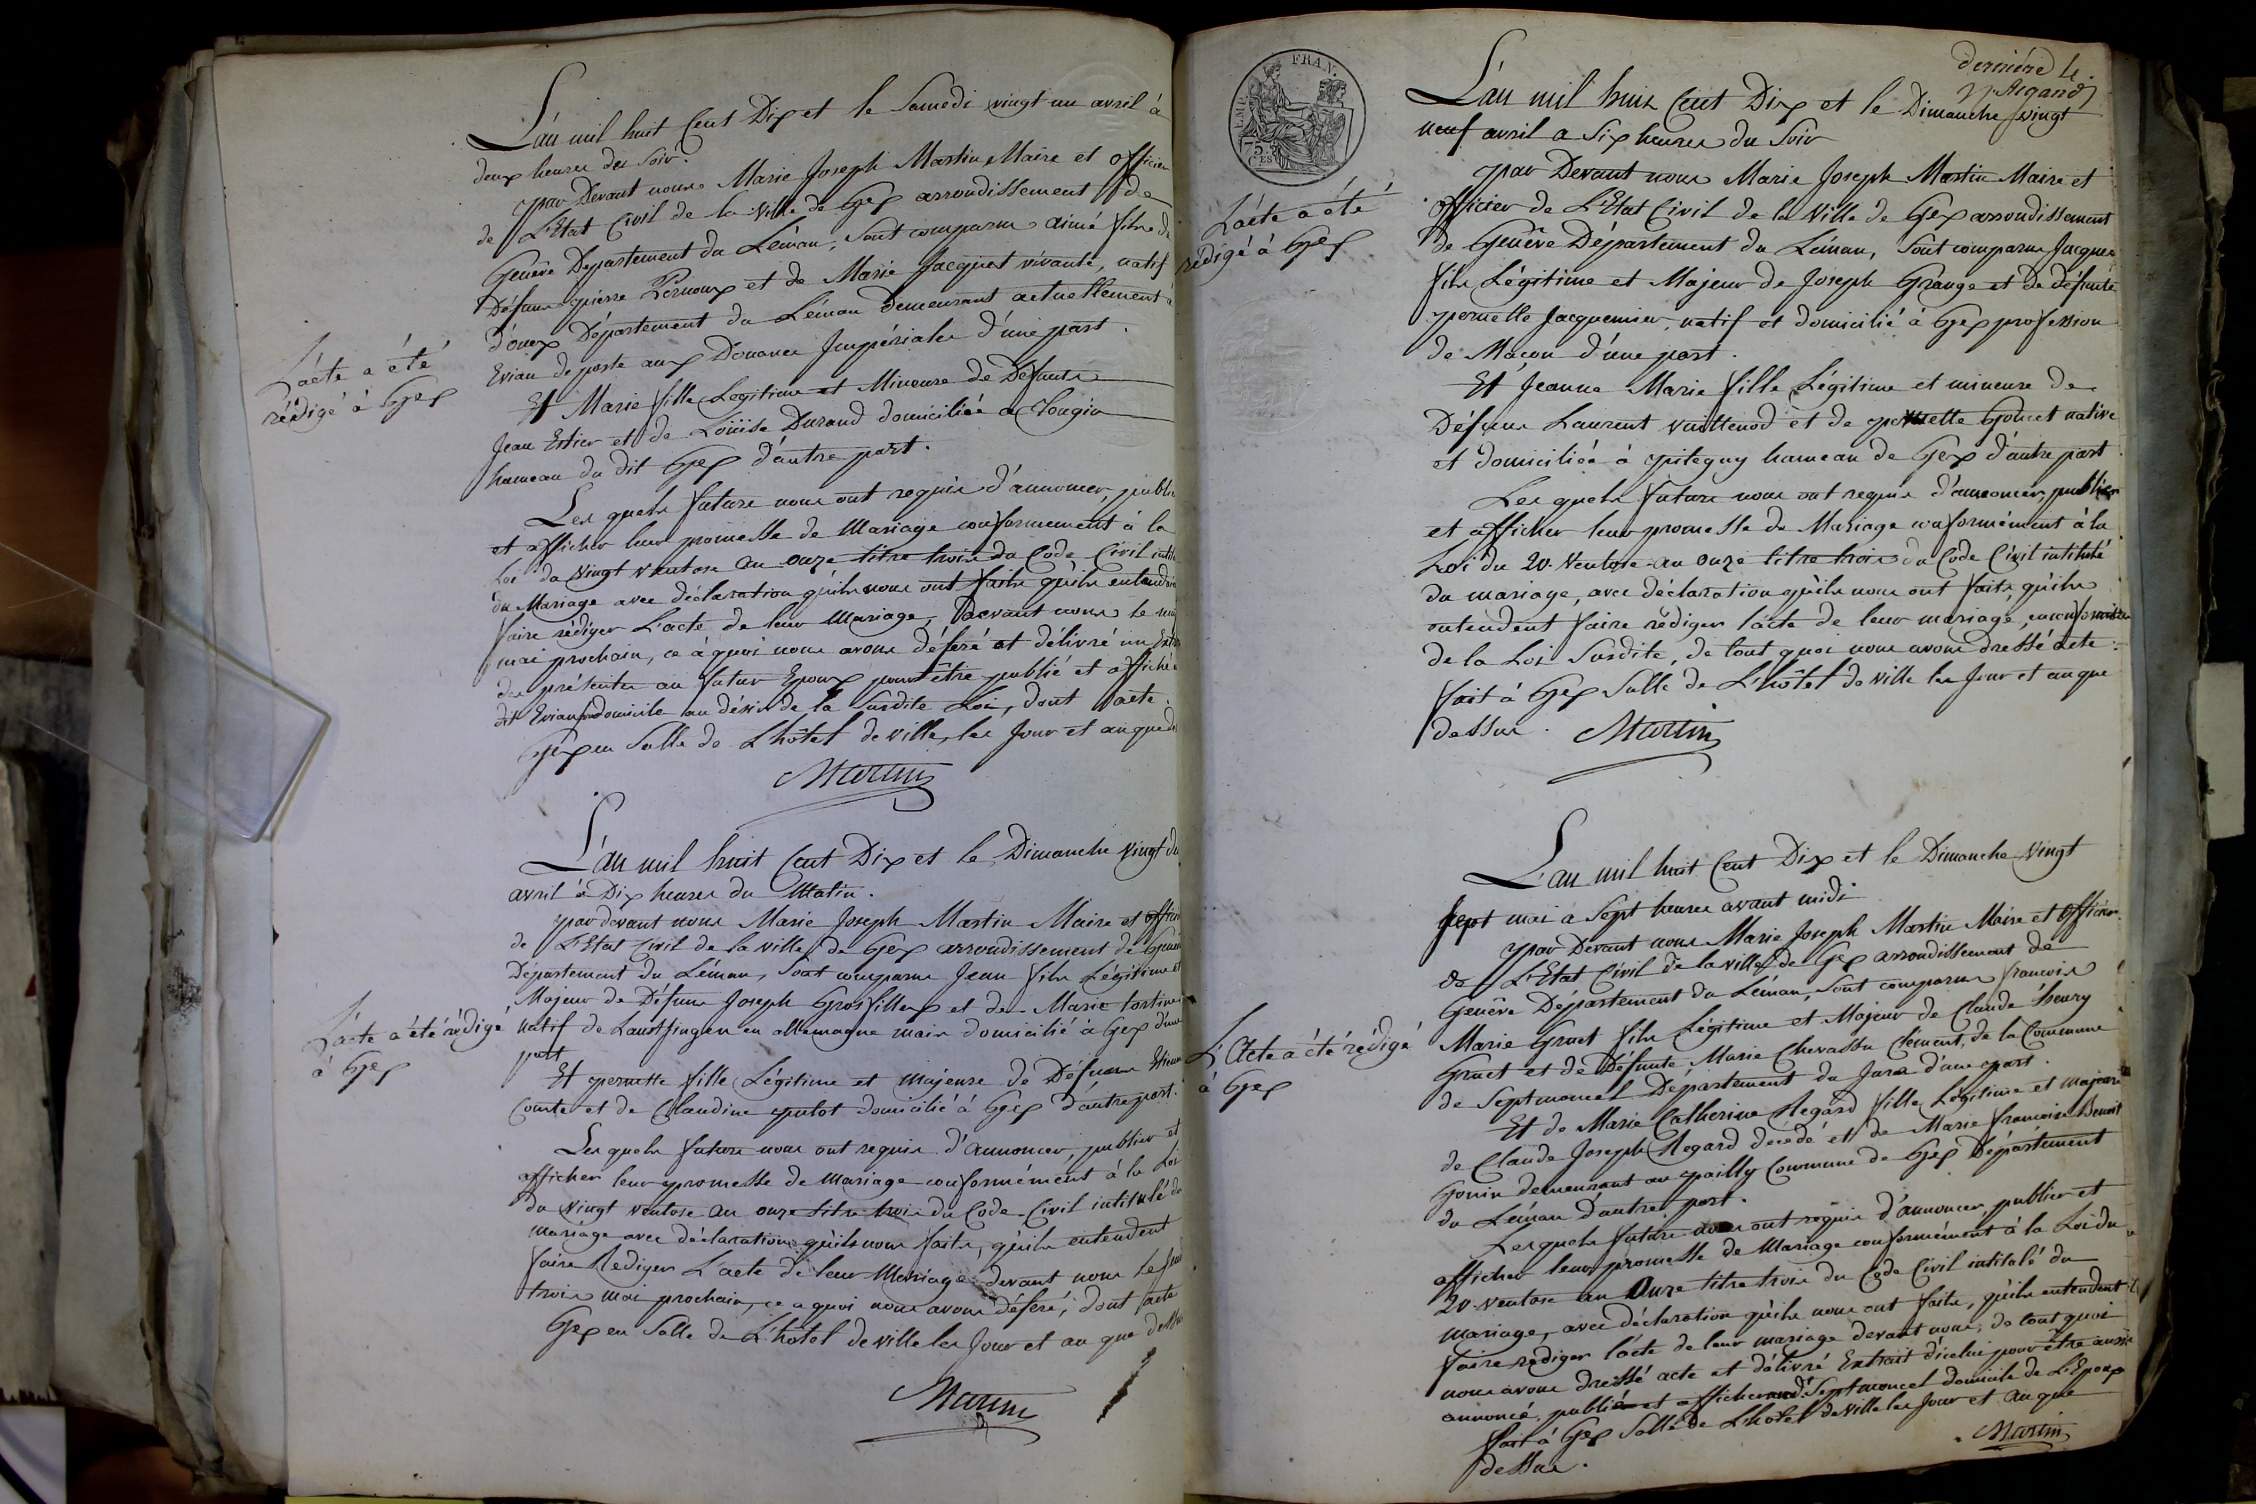 L'an mil huit Cent Dix et le Samedi vingt un avril à
deux heures du Soir.
par Devant nous Marie Joseph Martin Maire et officier
de L'Etat Civil de la Ville de Gex arrondissement de
Genêve Département du Léman, Sont comparus aimé fils de
Défunt pierre Pernoux et de Marie Jacquet vivante, natif
Département du Léman demeurant actuellement à
Evian de poste aux Douanes Impériales d'une part.
L'acte a été
rédigé à Gex
Et Marie fille Légitime et Mineure de Défunt
Jean Estier et de Loüise Durand domiciliée a Tougin
hameau du dit Gex d'autre part.
Les quels futurs nous ont requis d'annoncer, publier
et afficher leur promesse de Mariage conformement à la
Loi du Vingt Ventose an onze titre trois du Code Civil
du Mariage avec déclaration qu'ils nous ont faite qu'ils entendent
faire rédiger L'acte de leur Mariage, devant nous le
mai prochain, ce à quoi nous avons déféré et délivré un
des présentes au futur Epoux pour être publié et affiché
dit Evian domicile au désir de la Susdite Loi, dont acte.
Gex en Salle de L'hôtel de ville, les Jour et an que
Martin
L'an mil huit Cent Dix et le Dimanche Vingt
avril à Dix heures du Matin.
par devant nous Marie Joseph Martin Maire et officier
de L'Etat Civil de la ville de Gex arrondissement de Genêve
Département du Léman, Sont comparus Jean fils Légitime et
Majeur de Défunt Joseph Grosfillex et de Marie
natif de en allemagne mais domicilié à Gex d'une
part
L'acte a été rédigé
à Gex
Et pernette fille Légitime et majeure de Défunt Etienne
Comte et de Claudine domicilié à Gex d'autre part.
Les quels futurs nous ont requis d'annoncer, publier et
afficher leur promesse de Mariage conformément à la Loi
du Vingt Ventose an onze titre trois du Code Civil intitulé du
mariage avec déclaration qu'ils nous faite, qu'ils entendent
faire Rediger L'acte de leur Mariage devant nous le
trois mai prochain, ce a quoi nous avons déféré, dont acte
Gex en Salle de L'hôtel de ville les Jour et an que dessus
Martin
dernière 4.
L'an mil huit Cent Dix et le Dimanche Vingt
neuf avril a Six heures du Soir
FRAN.
75 CES
par Devant nous Marie Joseph Martin Maire et
officier de L'Etat Civil de la Ville de Gex arrondissement
de Genêve Département du Léman, Sont comparus Jacques
fils Légitime et Majeur de Joseph Grange et de défunte
pernette Jacquemier, natif et domicilié à Gex profession
de Maçon d'une part.
L'acte a été
rédigé à Gex
Et Jeanne Marie fille Légitime et mineure de
Défunt Laurent Vuillenod et de pernette Goncet native
et domiciliée à pitegny hameau de Gex d'autre part
Les quels futurs nous ont requis d'annoncer, publier
et afficher leur promesse de Mariage conformément à la
Loi du 20 Ventose an onze titre trois du Code Civil intitulé
du mariage, avec déclaration qu'ils nous ont faite qu'ils
entendent faire rédiger l'acte de leur mariage, en conformité
de la Loi Susdite, de tout quoi nous avons dressé acte
fait à Gex Salle de L'hôtel de Ville les Jour et an que
dessus. Martin
L'an mil huit Cent Dix et le Dimanche Vingt
Sept mai a Sept heures avant midi
par Devant nous Marie Joseph Martin Maire et officier
de L'Etat Civil de la ville de Gex arrondissement de
Genêve Département du Léman, Sont comparus françois
Marie Gruet fils Légitime et Majeur de Claude henry
Gruet et de Défunte Marie Chevassu Clément, de la Commune
de Septmoncel Département du Jura d'une part.
L'Acte a été rédigé
à Gex
Et de Marie Catherine Regard fille Légitime et majeure
de Claude Joseph Regard décédé et de Marie françoise Benoit
Gonin demeurant au pailly Commune de Gex Département
du Léman d'autre part.
Les quels futurs nous ont requis d'annoncer, publier et
afficher leur promesse de Mariage conformément à la Loi du
20 Ventose an Onze titre trois du Code Civil intitulé du
Mariage, avec déclaration qu'ils nous ont faite, qu'ils entendent
faire rediger l'acte de leur mariage devant nous, de tout quoi
nous avons dressé acte et délivré Extrait d'icelui pour être aussi
annoncé, publié et affiché aud. Septmoncel domicile de L'Epoux
fait à Gex Salle de L'hôtel de Ville les Jour et an que
dessus.
Martin